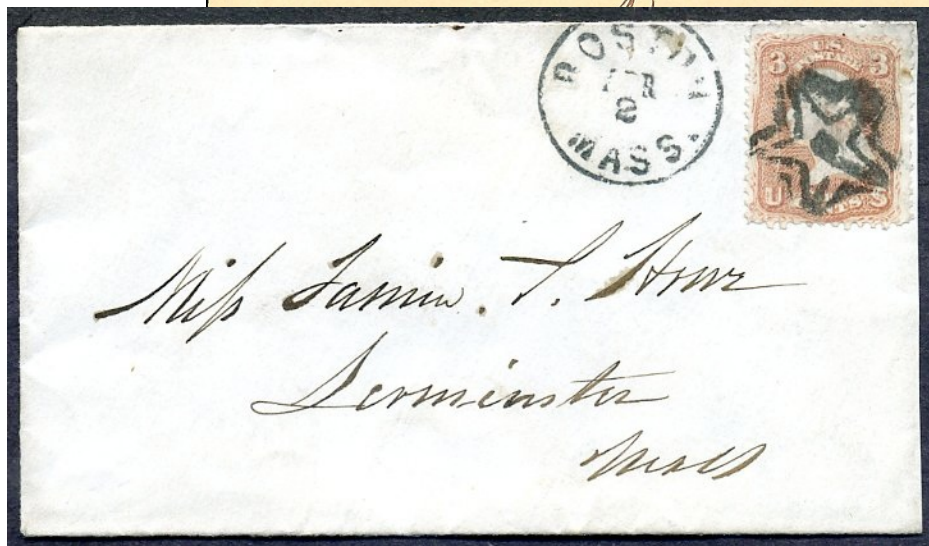 BOSTON
APR
2
MASS.
3 U.S. 3
U S
Miss Fannie. S. Howe
Leominster
Mass